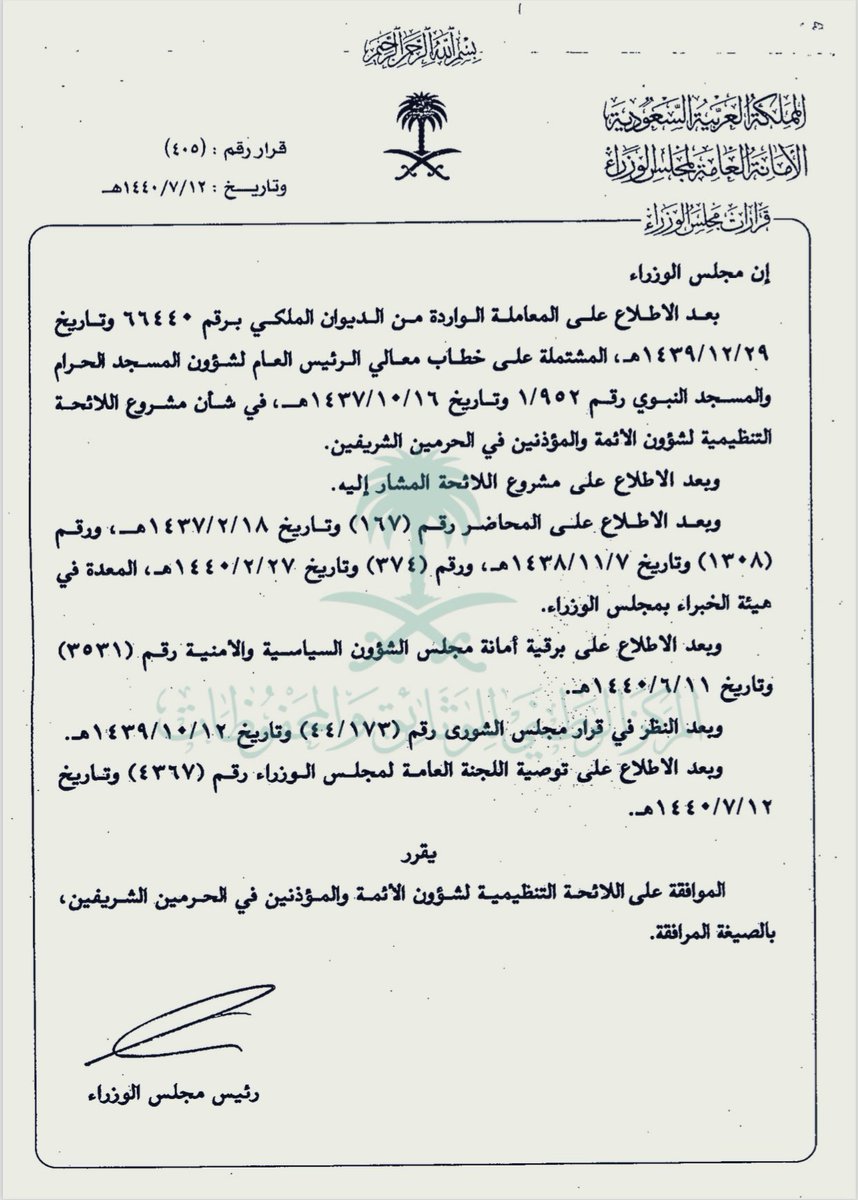 بسم الله الرحمن الرحيم
المملكة العربية السعودية
الأمانة العامة لمجلس الوزراء
قرار رقم : (٤٠٥)
وتاريــخ : ١٤٤٠/٧/١٢هـ
قرارات مجلس الوزراء
إن مجلس الوزراء
بعد الاطلاع على المعاملة الواردة من الديوان الملكي برقم ٦٦٤٤٠ وتاريخ
١٤٣٩/١٢/٢٩هـ، المشتملة على خطاب معالي الرئيس العام لشؤون المسجد الحرام
والمسجد النبوي رقم ١/٩٥٢ وتاريخ ١٤٣٧/١٠/١٦هـ، في شأن مشروع اللائحة
التنظيمية لشؤون الأئمة والمؤذنين في الحرمين الشريفين.
وبعد الاطلاع على مشروع اللائحة المشار إليه.
وبعد الاطلاع على المحاضر رقم (١٦٧) وتاريخ ١٤٣٧/٢/١٨هـ، ورقم
(١٣٠٨) وتاريخ ١٤٣٨/١١/٧هـ، ورقم (٣٧٤) وتاريخ ١٤٤٠/٢/٢٧هـ، المعدة في
هيئة الخبراء بمجلس الوزراء.
وبعد الاطلاع على برقية أمانة مجلس الشؤون السياسية والأمنية رقم (٣٥٣١)
وتاريخ ١٤٤٠/٦/١١هـ.
المركز الوطني للوثائق والمحفوظات
وبعد النظر في قرار مجلس الشورى رقم (٤٤/١٧٣) وتاريخ ١٤٣٩/١٠/١٢هـ.
وبعد الاطلاع على توصية اللجنة العامة لمجلس الوزراء رقم (٤٣٦٧) وتاريخ
١٤٤٠/٧/١٢هـ.
يقرر
الموافقة على اللائحة التنظيمية لشؤون الأئمة والمؤذنين في الحرمين الشريفين،
بالصيغة المرافقة.
رئيس مجلس الوزراء